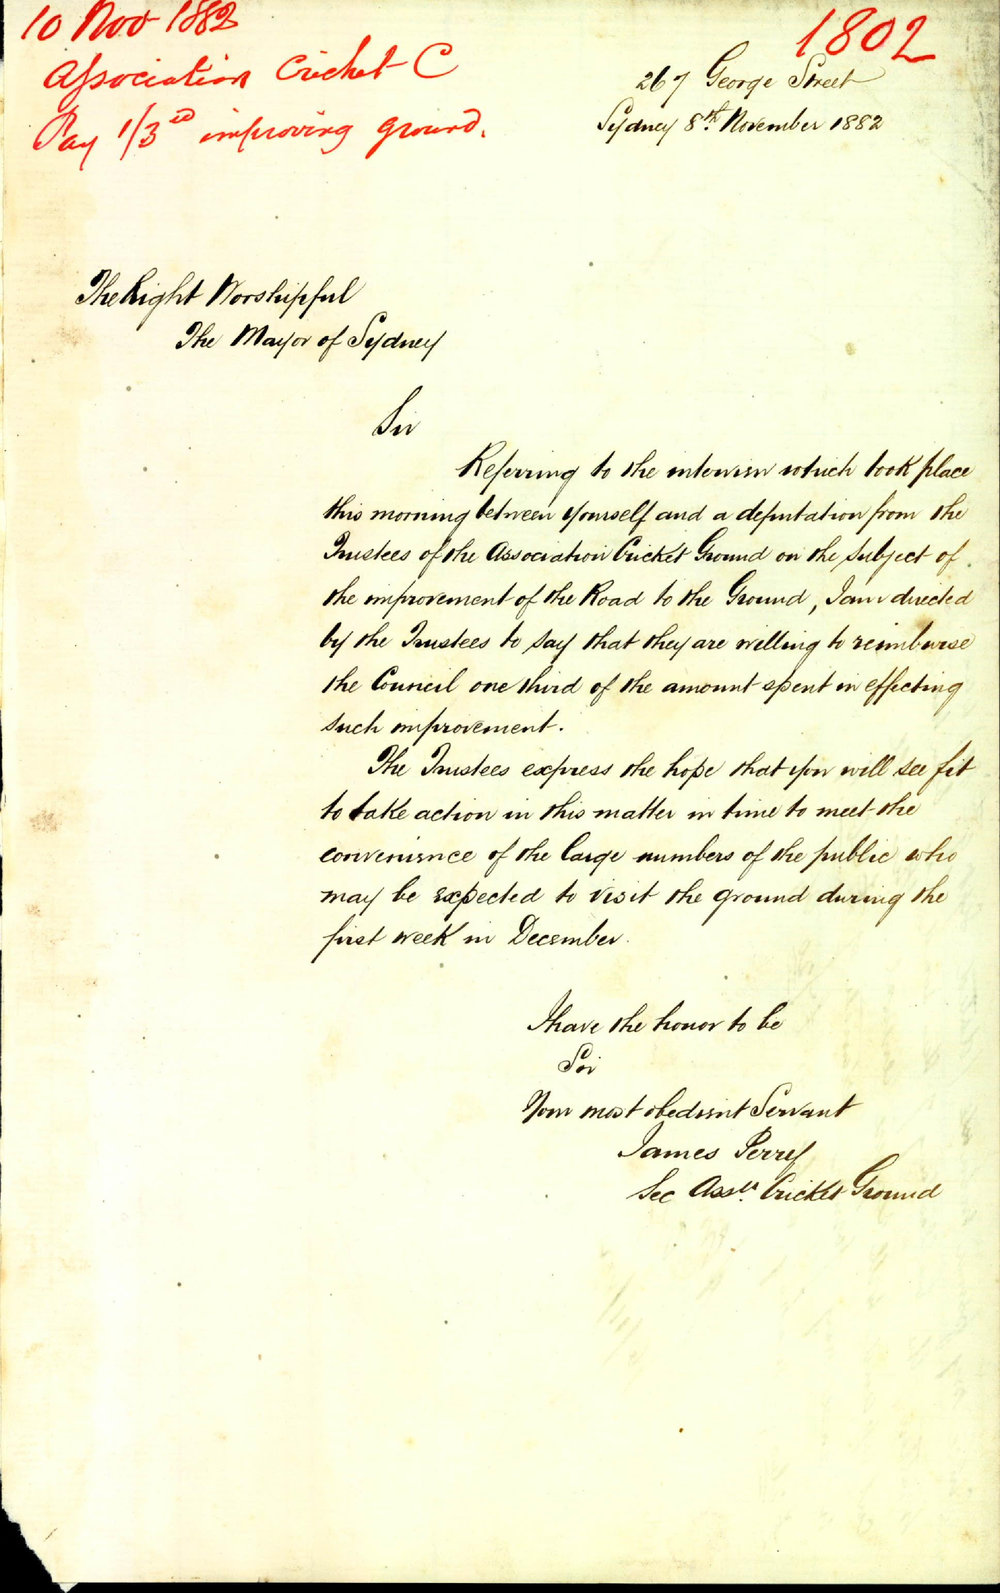 10 Nov 1882
Association Cricket C
Pay 1/3rd improving ground.
1802
267 George Street
Sydney 8th November 1882
The Right Worshipful
The Mayor of Sydney
Sir
Referring to the interview which took place
this morning between yourself and a deputation from the
Trustees of the Association Cricket Ground on the subject of
the improvement of the Road to the Ground, I am directed
by the Trustees to say that they are willing to reimburse
the Council one third of the amount spent in effecting
such improvement.
The Trustees express the hope that you will see fit
to take action in this matter in time to meet the
convenience of the large numbers of the public who
may be expected to visit the ground during the
first week in December.
I have the honor to be
Sir
Your most obedient Servant
James Perry
Sec Assn. Cricket Ground